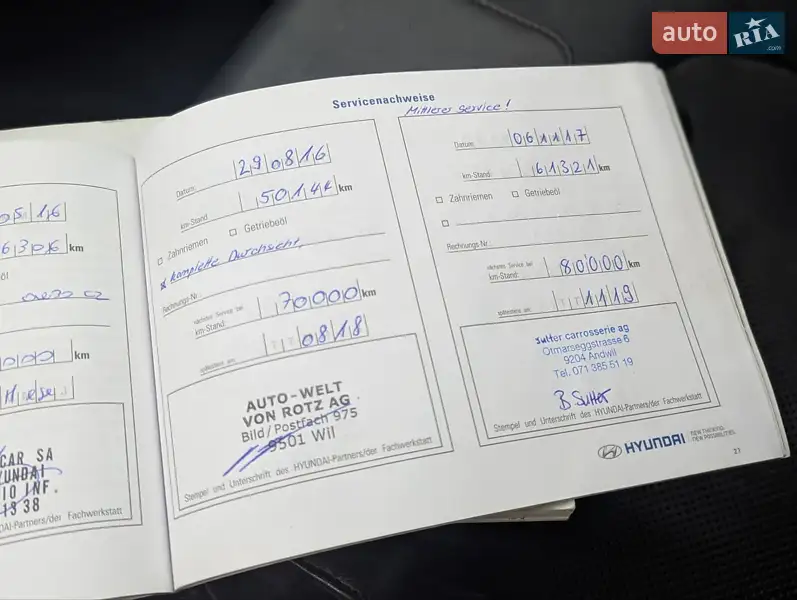 auto RIA .com
Servicenachweise
05 16
km
km
CAR SA
IO INF.
DAI-Partners/der Fachwerkstatt
Datum: 29 08 16
km-Stand: km
Zahnriemen Getriebeöl
x komplette Durchsicht
Rechnungs-Nr.:
nächster Service bei
km-Stand: 70000 km
spätestens am: T T 08 18
AUTO-WELT
VON ROTZ AG
Bild/Postfach 975
9501 Wil
Stempel und Unterschrift des HYUNDAI-Partners/der Fachwerkstatt
Mittlerer Service!
Datum: 06 11 17
km-Stand: 61321 km
Zahnriemen Getriebeöl
Rechnungs-Nr.:
nächster Service bei
km-Stand: 80000 km
spätestens am: T T 11 19
sutter carrosserie ag
Otmarseggstrasse 6
9204 Andwil
Tel. 071 385 51 19
B Sutter
Stempel und Unterschrift des HYUNDAI-Partners/der Fachwerkstatt
HYUNDAI NEW THINKING. NEW POSSIBILITIES.